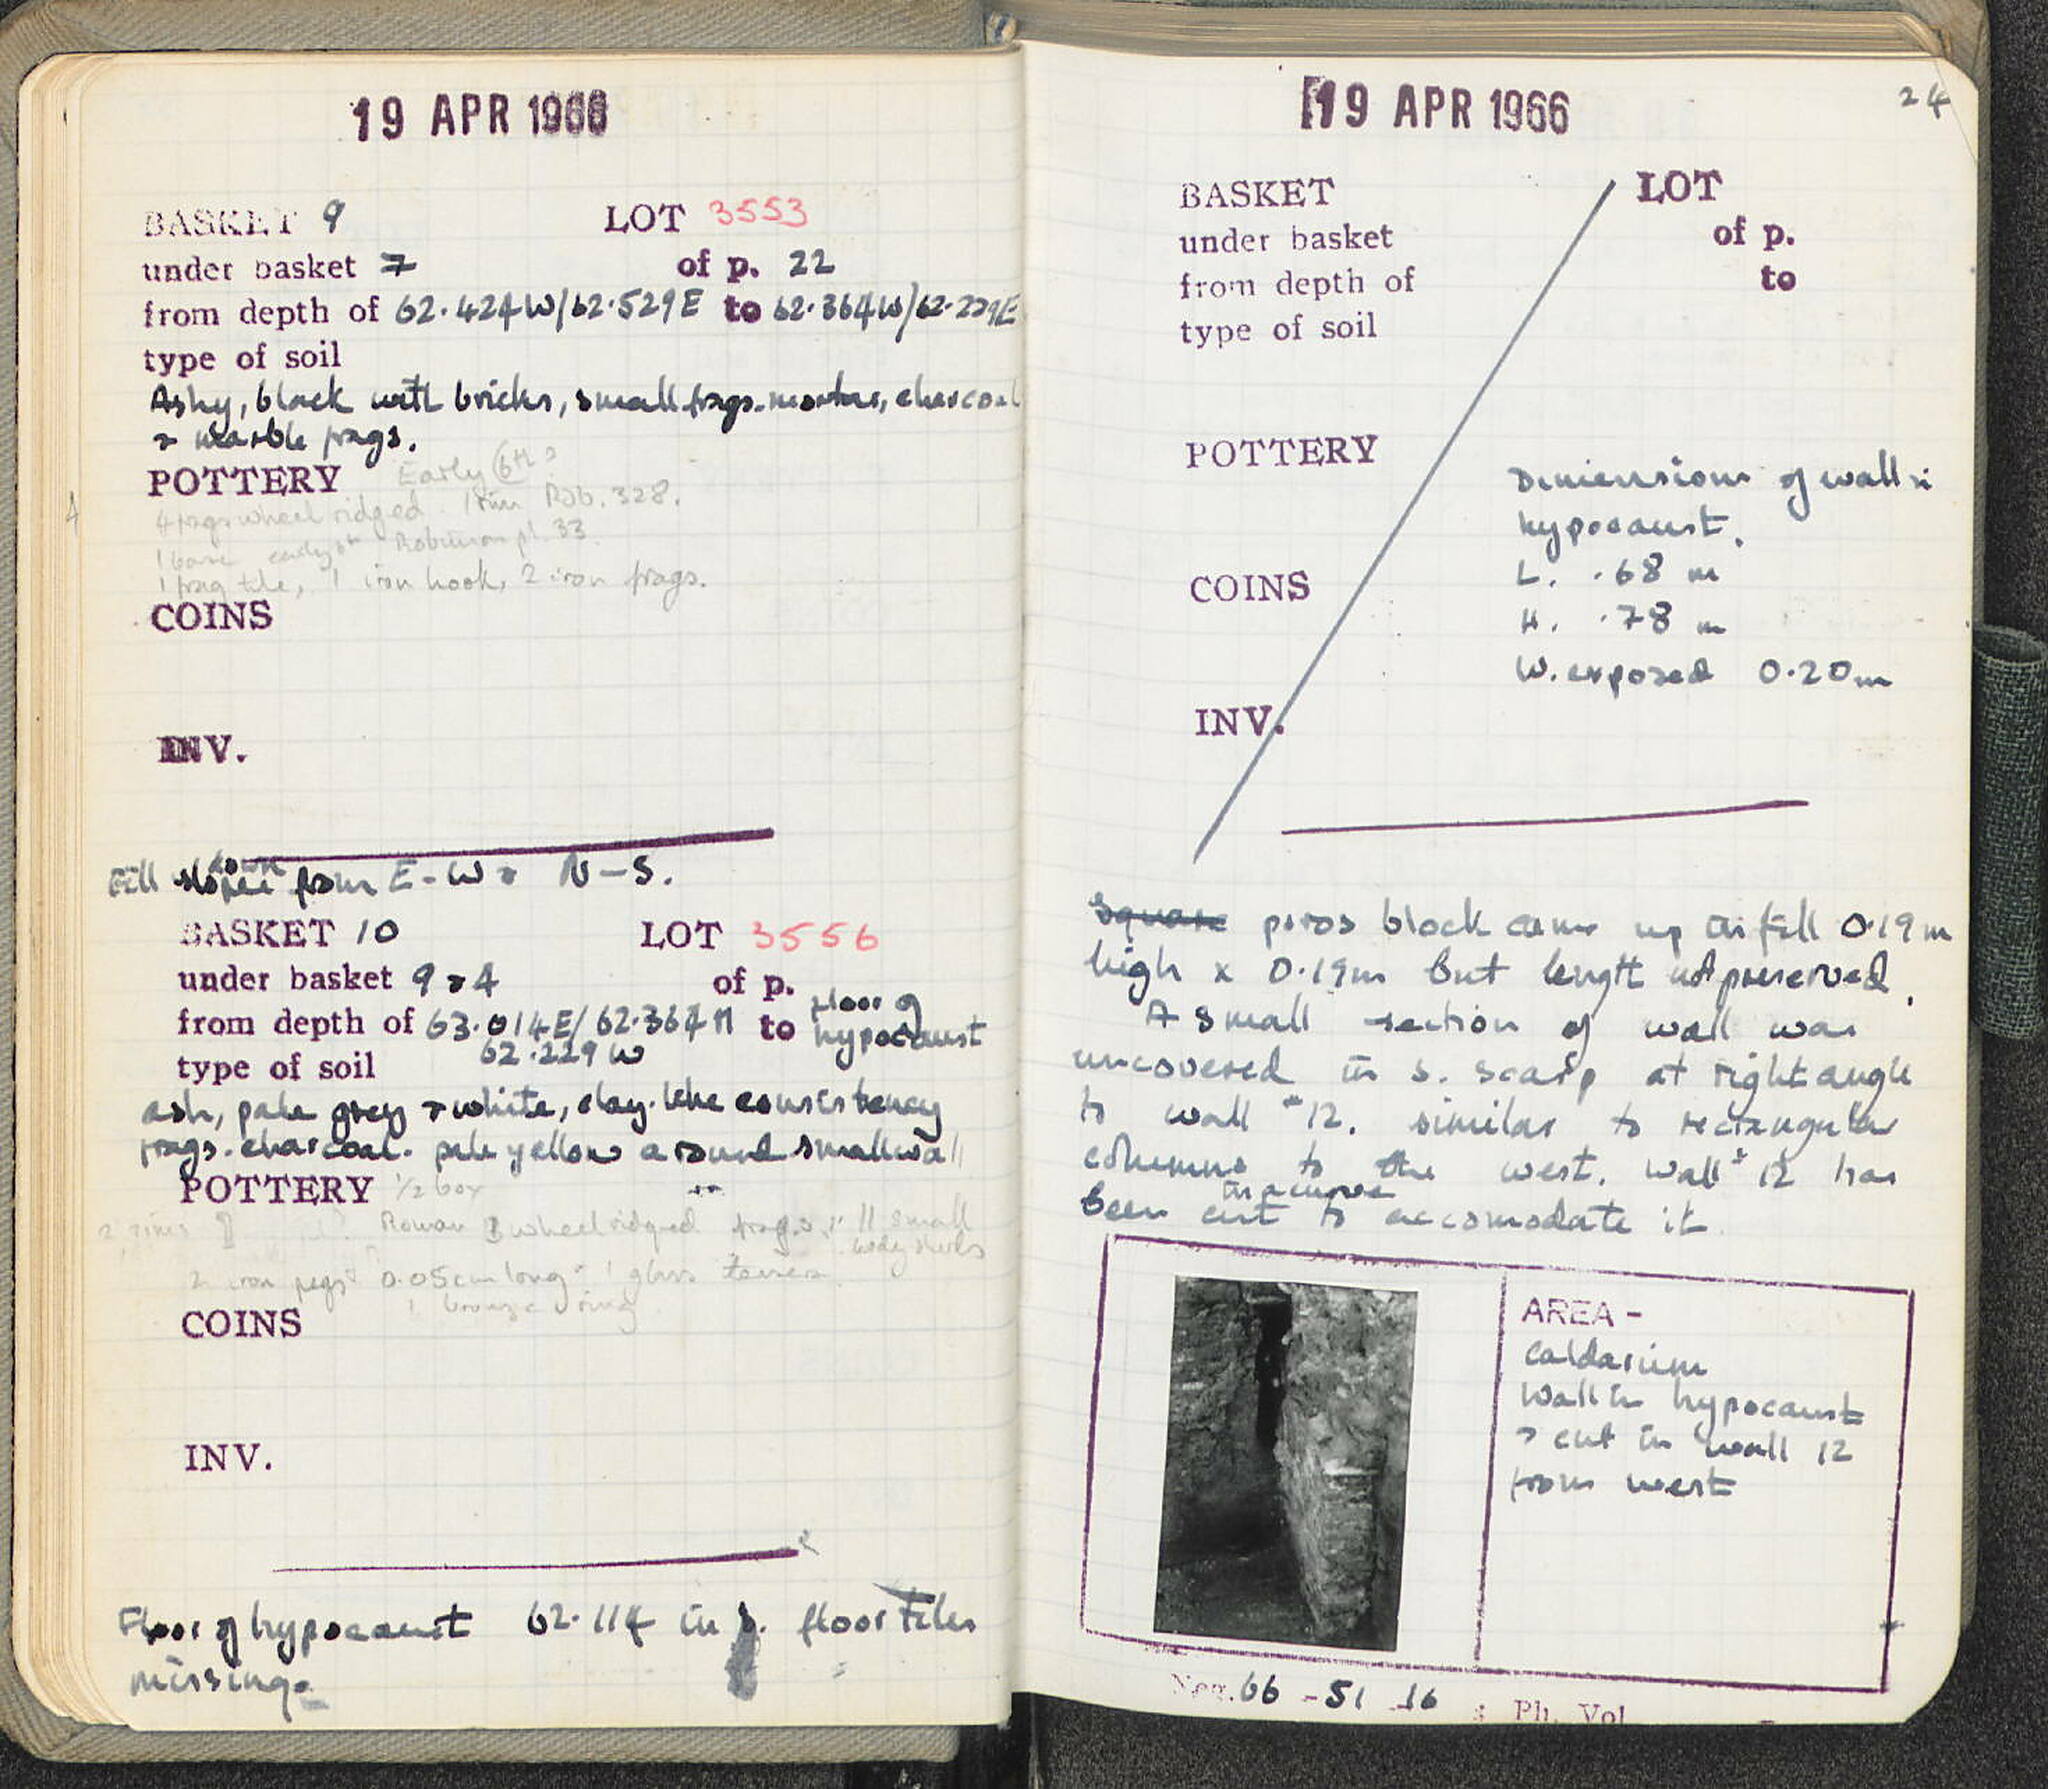 19 APR 1966
BASKET 9 LOT 3553
under basket 7 of p. 22
from depth of 62.424W/62.529E to 62.364W/62.229E
type of soil
Ashy, black with bricks, small frags. mortar, charcoal
& marble frags.
POTTERY Early 6th?
4 frags wheel ridged. 1 rim Rob. 328.
1 base early Robinson pl. 33.
1 frag tile, 1 iron hook, 2 iron frags.
COINS
INV.
Fill slopes down from E-W & N-S.
BASKET 10 LOT 3556
under basket 9 & 4 of p.
from depth of 63.014E/62.364N to floor of hypocaust
62.229W
type of soil
ash, pale grey & white, clay-like consistency
frags. charcoal. pale yellow around small wall
POTTERY 1/2 box
2 rims Roman wheel ridged frags. 11 small body sherds
2 iron pegs 0.05cm long 1 glass tessera
1 bronze ring
COINS
INV.
Floor of hypocaust 62.114 in S. floor tiles
missing.
19 APR 1966 24
BASKET LOT
under basket of p.
from depth of to
type of soil
POTTERY
Dimensions of wall in
hypocaust.
COINS
L. .68 m
H. .78 m
W. exposed 0.20m
INV.
Square poros block came up in fill 0.19m
high x 0.19m but length not preserved.
A small section of wall was
uncovered in S. scarp at right angle
to wall #12. similar to rectangular
columns to the west. Wall #12 has
been cut in a curve to accomodate it.
AREA -
Caldarium
Wall in hypocaust
& cut in wall 12
from west
Neg. 66 - 51 - 16 : Ph. Vol